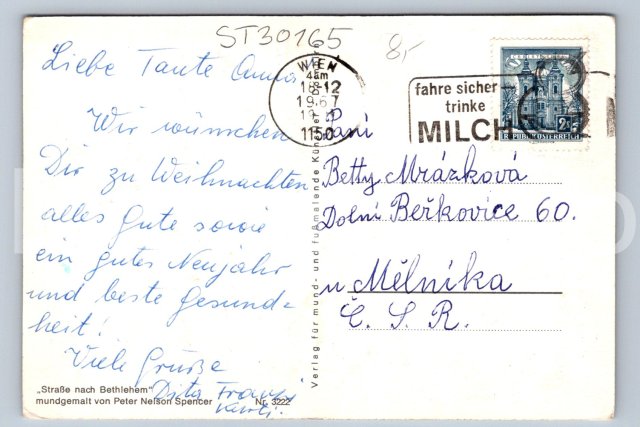 ST30165
8,-
Liebe Tante Anna
Wir wünschen
Dir zu Weihnachten
alles gute sowie
ein gutes Neujahr
und beste Gesund=
heit!
Viele Grüße
Dita Franzi
„Straße nach Bethlehem"
mundgemalt von Peter Nelson Spencer
Nr. 3222
Verlag für mund- und fußmalende Künstler
WIEN
18.12
1967
1150
fahre sicher
trinke
MILCH
REPUBLIK ÖSTERREICH
Paní
Betty Mrázková
Dolní Beřkovice 60.
u Mělníka
Č. S. R.